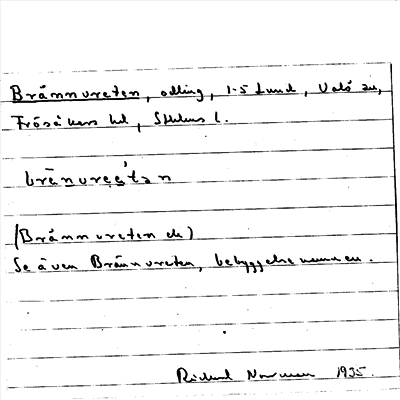 Brännvreten, odling, 1-5 Lund, Valö sn,
Frösåkers hd, Sthlms l.
brä̀nvreɛ́tən
(Brännvreten ek)
Se även Brännvreten, bebyggelsenamnen.
Rickard 1935.